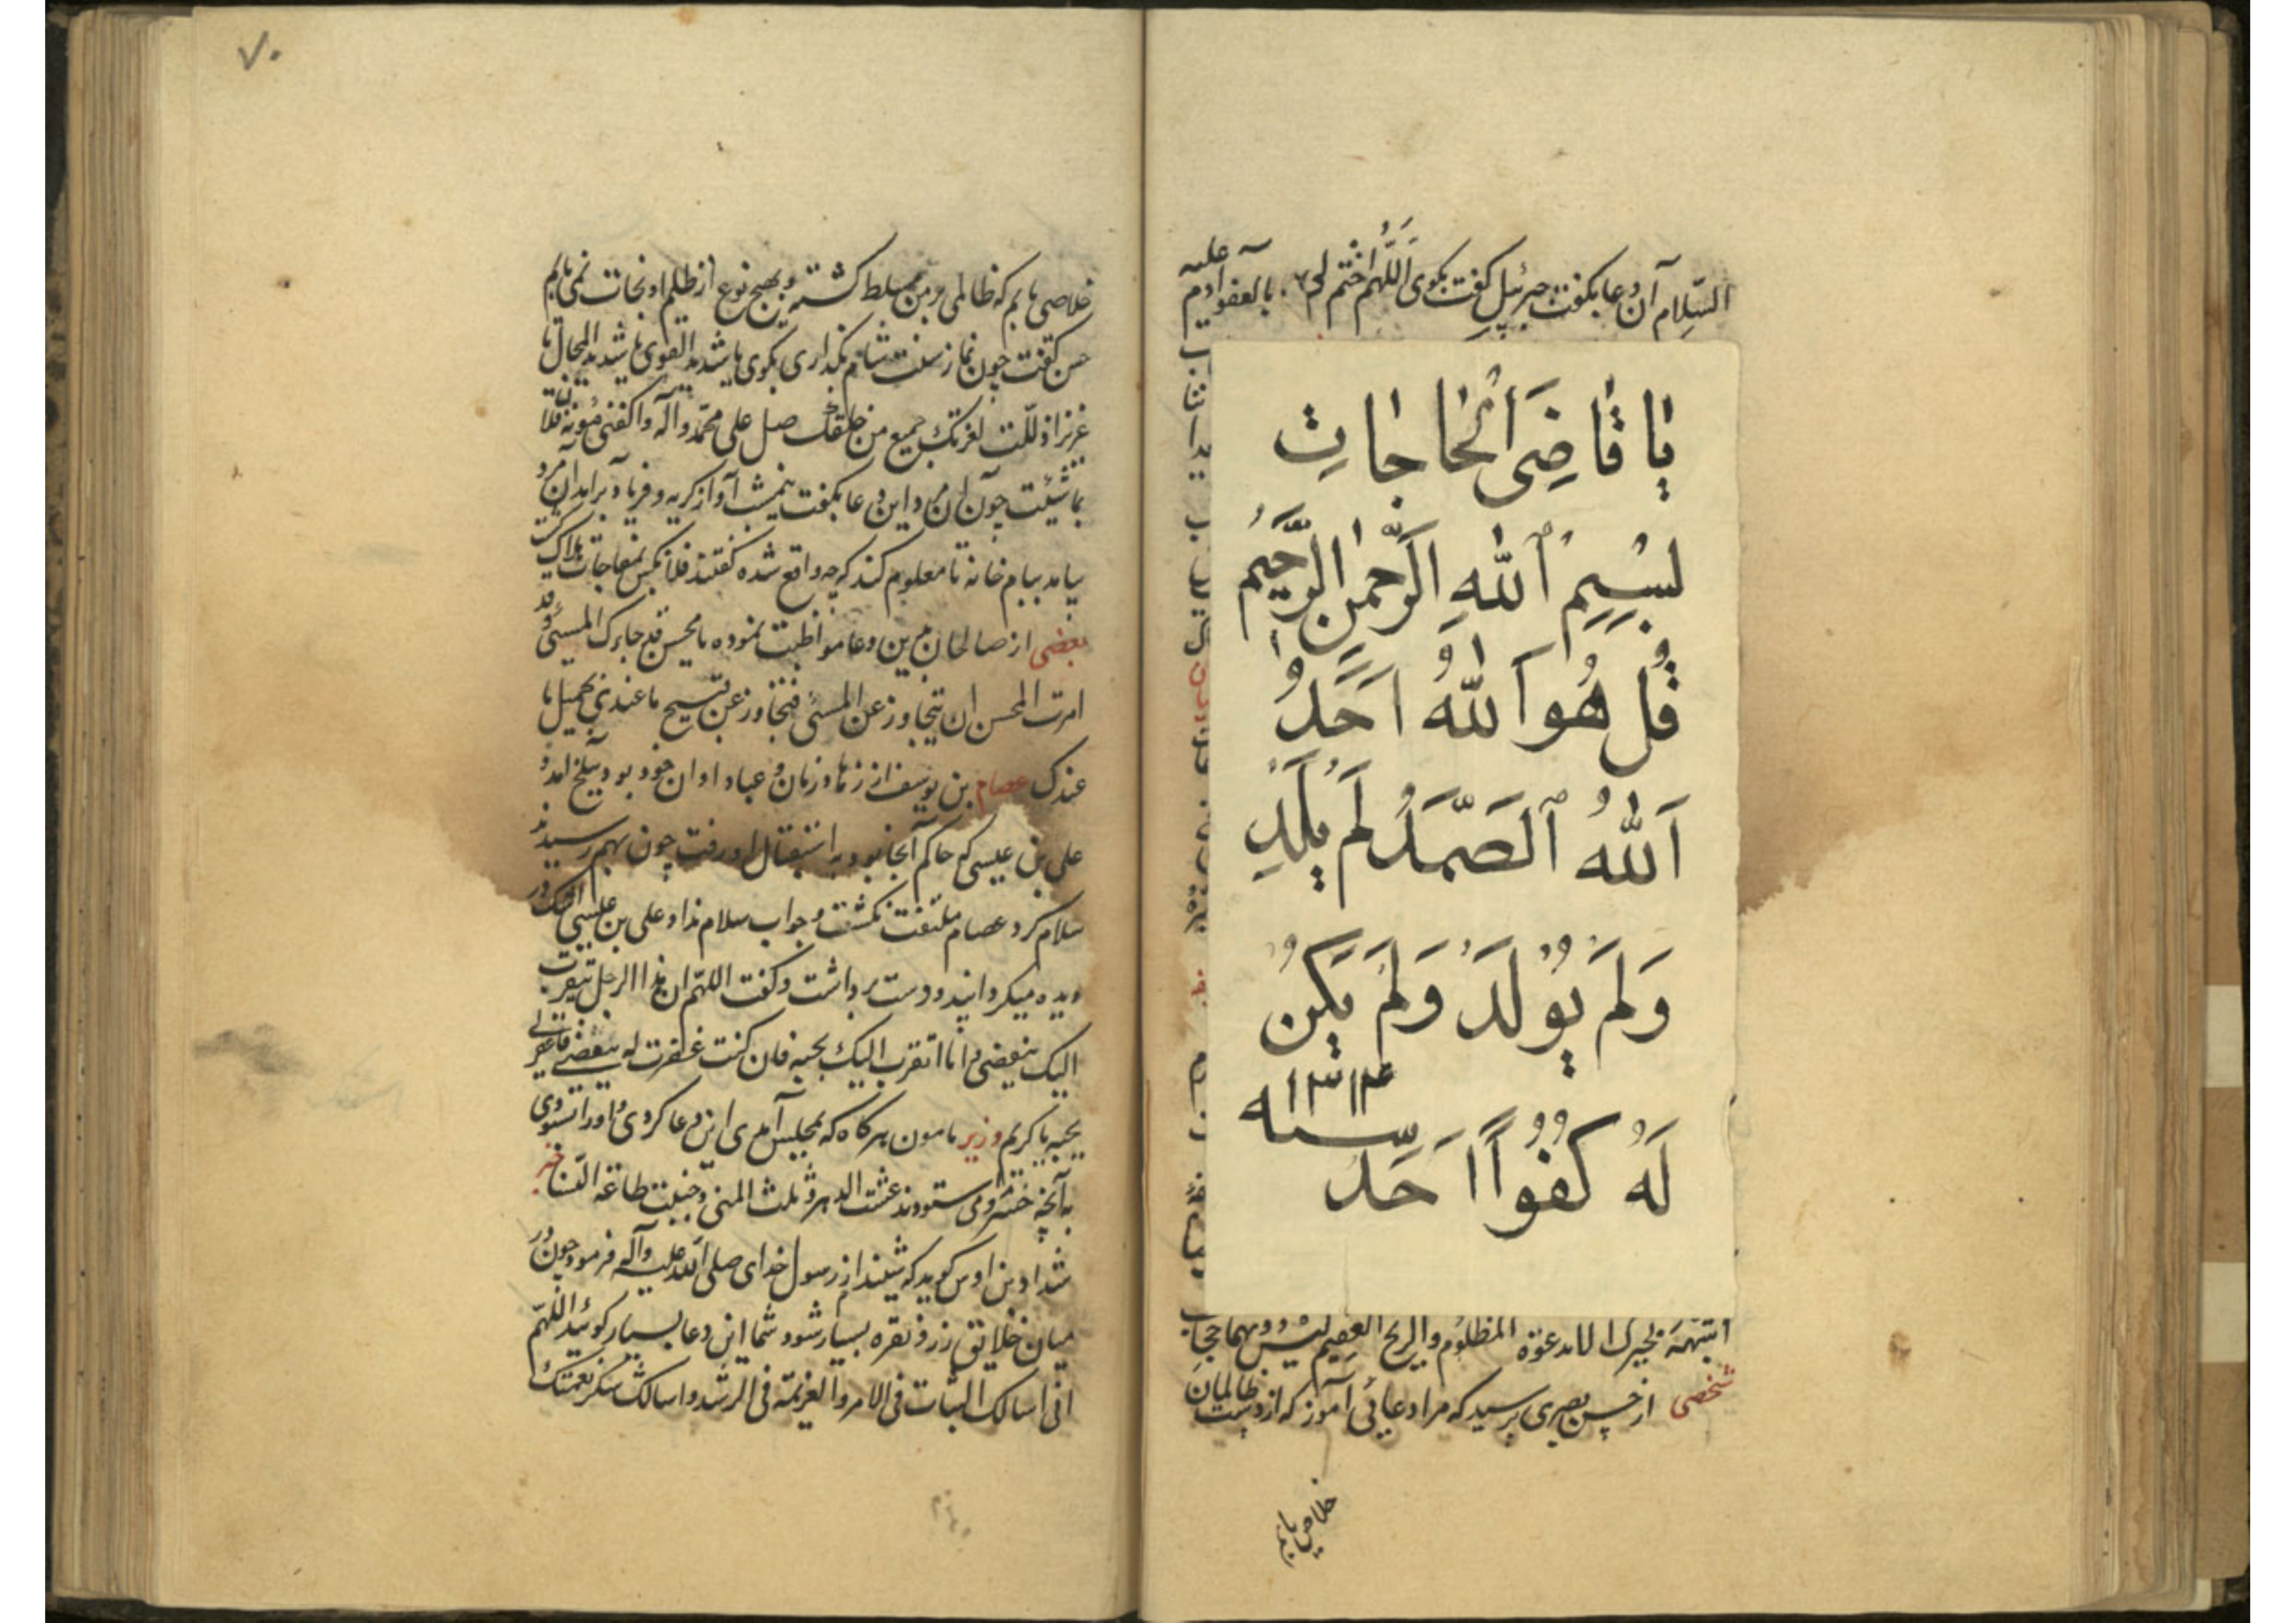 السّلام آن دعا بگفت جبرئیل گفت بگوی اَللّهُمَّ اخْتِم لی بالعفو آدم علیه
یَا قَاضِیَ الْحَاجَاتِ
بِسْمِ اللهِ الرَّحْمنِ الرَّحِیمِ
قُل هُوَ اَللهُ اَحَدُ
اَللهُ الصَّمَدُ لَم یَلِدِ
وَلَم یُولَد وَلَم یَکُن
لَهُ کُفُواً اَحَد
سنه ۱۳۱۴
دعوة المظلوم
شخصی از حسن بصری پرسید که مرا دعائی آموز که از دست ظالمان
خلاصی یابم
۷۰
خلاصی یابم که ظالمی بر من مسلط گشته و بهیچ نوع از ظلم او نجات نمی یابم
حسن گفت چون نماز سنت شام بگذاری بگوی یا شدید القوی یا شدید المحال یا
عزیز اذللت لعزتک جمیع من خلقک صل علی محمد وآله واکفنی مؤنة فلان
بما شئت چون آن مرد این دعا بگفت نیمشب آواز گریه و فریاد برآمد آن مرد
بیامد ببام خانه تا معلوم کند که چه واقع شده گفتند فلانکس بمفاجات هلاک گشت
بعضی از صالحان بر این دعا مواظبت نموده یا محسن قد جاءک المسیء وقد
امرت المحسن ان یتجاوز عن المسیء فتجاوز عن قبیح ما عندی بجمیل ما
عندک عصام بن یوسف از زهاد زمان و عباد اوان خود بود ببلخ آمد و
علی بن عیسی که حاکم آنجا بود به استقبال او رفت چون بهم رسیدند
سلام کرد عصام ملتفت نگشت و جواب سلام نداد علی بن عیسی اشک در
دیده میگردانید و دست برداشت و گفت اللهم ان هذا الرجل یتقرب
الیک ببغضی و انا اتقرب الیک بحبه فان کنت غفرت له ببغضی فاغفر لی
بحبه یا کریم وزیر مامون هرگاه که بمجلس آمدی این دعا کردی و او را ستودی
به آنچه خسرو می ستودند عشت الدهر و نلت المنی و جنبت طاعة النساء خبر
شداد بن اوس گوید که شنیدم از رسول خدای صلی الله علیه وآله فرمود چون در
میان خلایق زر و نقره بسیار شود شما این دعا بسیار گوئید اللهم
انی اسالک الثبات فی الامر والعزیمة فی الرشد واسالک شکر نعمتک